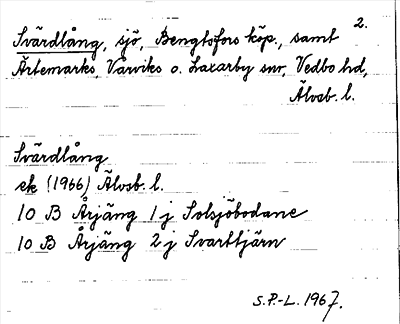 2.
Svärdlång, sjö, Bengtsfors köp., samt
Ärtemarks, Värviks o. Laxarby snr, Vedbo hd,
Älvsb. l.
Svärdlång
ek (1966) Älvsb. l.
10 B Årjäng 1 j Solsjöbodane
10 B Årjäng 2 j Svarttjärn
S.P.-L. 1967.